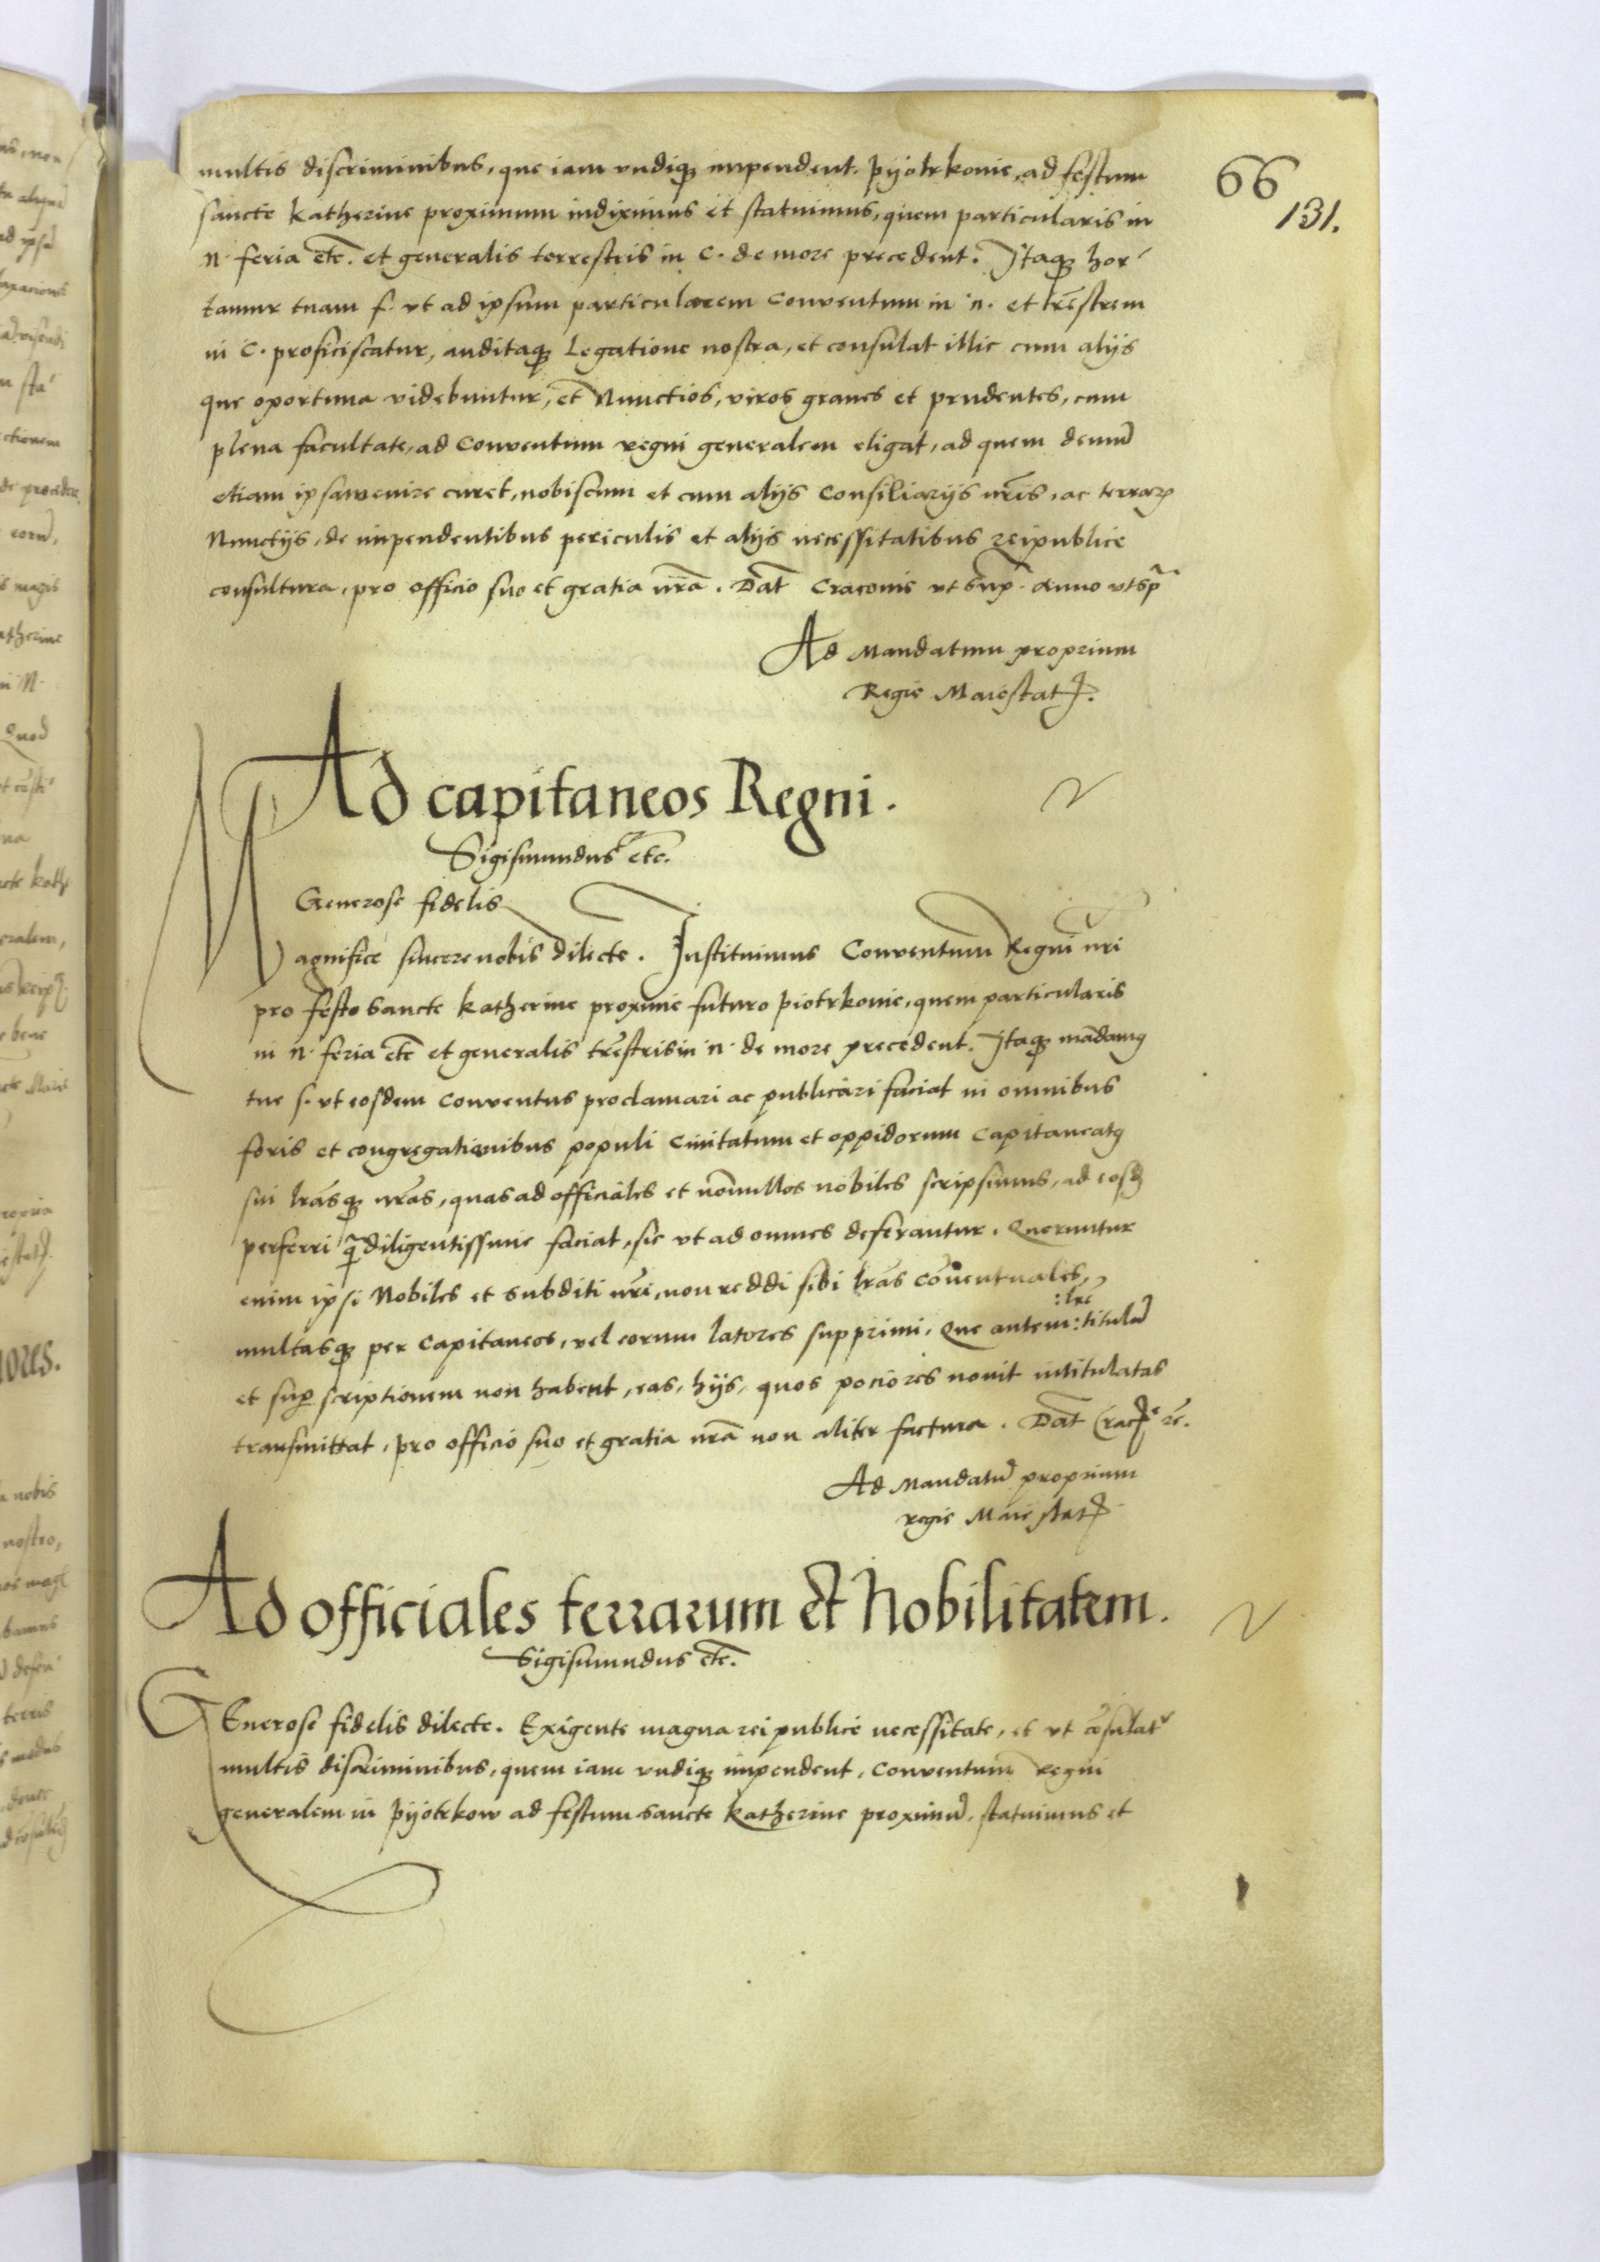 66
131.
multis discriminibus, que iam vndiqꝫ impendent. Pyotrkouie, ad festum
sancte Katherine proximum indiximus et statuimus, quem particularis in
N. feria etc̃. et generalis terrestris in C. de more precedent. Itaqꝫ hor-
tamur tuam f. vt ad ipsum particularem Conventum in n. et trẽstrem
in C. proficiscatur, auditaqꝫ Legatione nostra, et consulat illic cum alijs
que oportuna videbuntur, et Nunctios, viros graues et prudentes, cum
plena facultate, ad Conventum regni generalem eligat, ad quem demũ
etiam ipsa venire curet, nobiscum et cum alijs Consiliarijs nr̃is, ac terrarꝫ
Nunctijs, de impendentibus periculis et alijs necessitatibus reipublice
consultura, pro officio suo et gratia nr̃a. Dat̃ Cracouie vt supꝛ. Anno vt sp̃
Ad Mandatum proprium
Regie Maiestatꝭ.
Ad capitaneos Regni.
Sigismundus etc̃.
Generose fidelis
Magnifice sincere nobis dilecte. Instituimus Conventum Regni nr̃i
pro festo Sancte Katherine proxime futuro Piotrkouie, quem particularis
in n. feria etc̃ et generalis trẽstris in n. de more precedent. Itaqꝫ mãdamꝰ
tue s. vt eosdem Conventus proclamari ac publicari faciat in omnibus
foris et congregationibus populi Ciuitatum et oppidorum Capitaneatꝰ
sui lrãsqꝫ nrãs, quas ad officiales et nõnullos nobiles scripsimus, ad eosdẽ
perferri q̃ diligentissime faciat, sic vt ad omnes deferantur. Queruntur
enim ipsi Nobiles et subditi nrĩ, non reddi sibi lrãs Cõuentuales,
multasqꝫ per Capitaneos, vel eorum latores supprimi, Que autem :lrẽ: titulũ
et suꝑscriptionem non habent, eas, hijs, quos pociores nouit intitulatas
transmittat, pro officio suo et gratia nrã non aliter factura. Dat̃ Cracꝭ etc̃.
Ad Mandatũ proprium
regie Maiestatꝭ
Ad officiales terrarum et Nobilitatem.
Sigismundus etc̃.
GEnerose fidelis dilecte. Exigente magna reipublice necessitate, et vt cõsulatᵘʳ
multis discriminibus, quem iam vndiqꝫ impendent, Conventum regni
generalem in Pyotrkow ad festum sancte Katherine proximũ, statuimus et